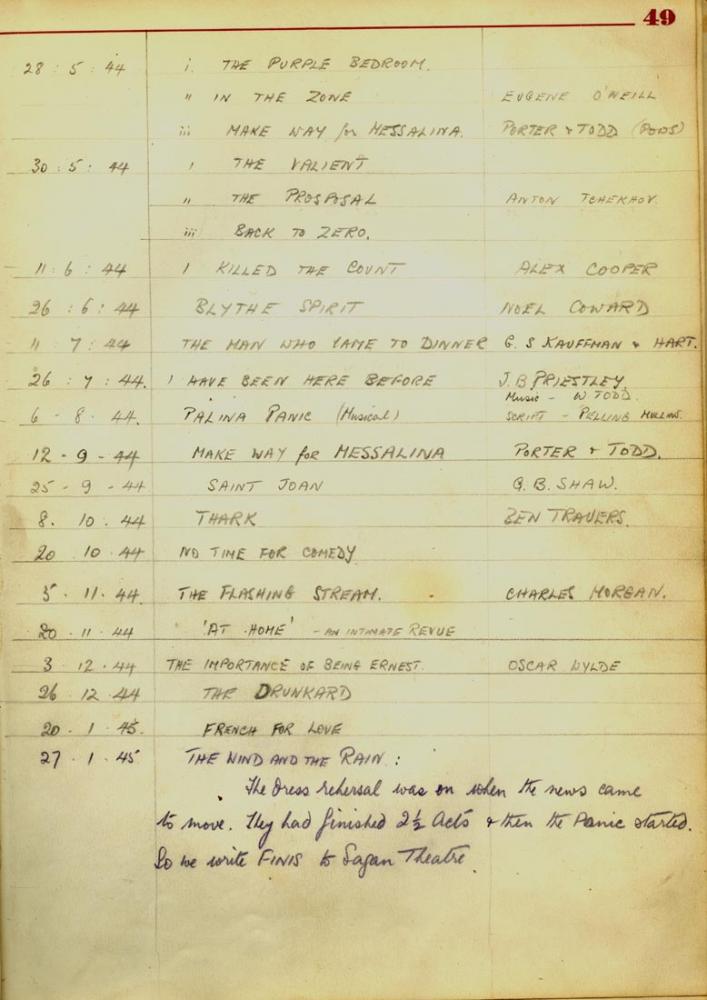 49
28 : 5 : 44 i. THE PURPLE BEDROOM.
" IN THE ZONE EUGENE O'NEILL
iii MAKE WAY for MESSALINA. PORTER & TODD (POWS)
30 : 5 : 44 i THE VALIENT
" THE PROSPOSAL ANTON TCHEKHOV.
iii BACK TO ZERO.
11 : 6 : 44 I KILLED THE COUNT ALEX COOPER
26 : 6 : 44 BLYTHE SPIRIT NOEL COWARD
11 7 : 44 THE MAN WHO CAME TO DINNER G. S KAUFFMAN & HART.
26 : 7 : 44. I HAVE BEEN HERE BEFORE J. B PRIESTLEY
Music - W. TODD.
6 - 8 - 44. PALINA PANIC (Musical) SCRIPT - PELLING MULLINS.
12 - 9 - 44 MAKE WAY for MESSALINA PORTER & TODD.
25 - 9 - 44 SAINT JOAN G. B. SHAW.
8. 10. 44 THARK BEN TRAVERS.
20 10. 44 NO TIME FOR COMEDY
5 · 11 · 44. THE FLASHING STREAM. CHARLES MORGAN.
20 · 11 · 44 'AT HOME' - AN INTIMATE REVUE
3 · 12 · 44 THE IMPORTANCE OF BEING ERNEST. OSCAR WYLDE
26 · 12 · 44 THE DRUNKARD
20 · 1 · 45. FRENCH FOR LOVE
27 · 1 · 45 THE WIND AND THE RAIN :
The dress rehersal was on when the news came
to move. They had finished 2½ Acts & then the Panic started.
So we write FINIS to Sagan Theatre.